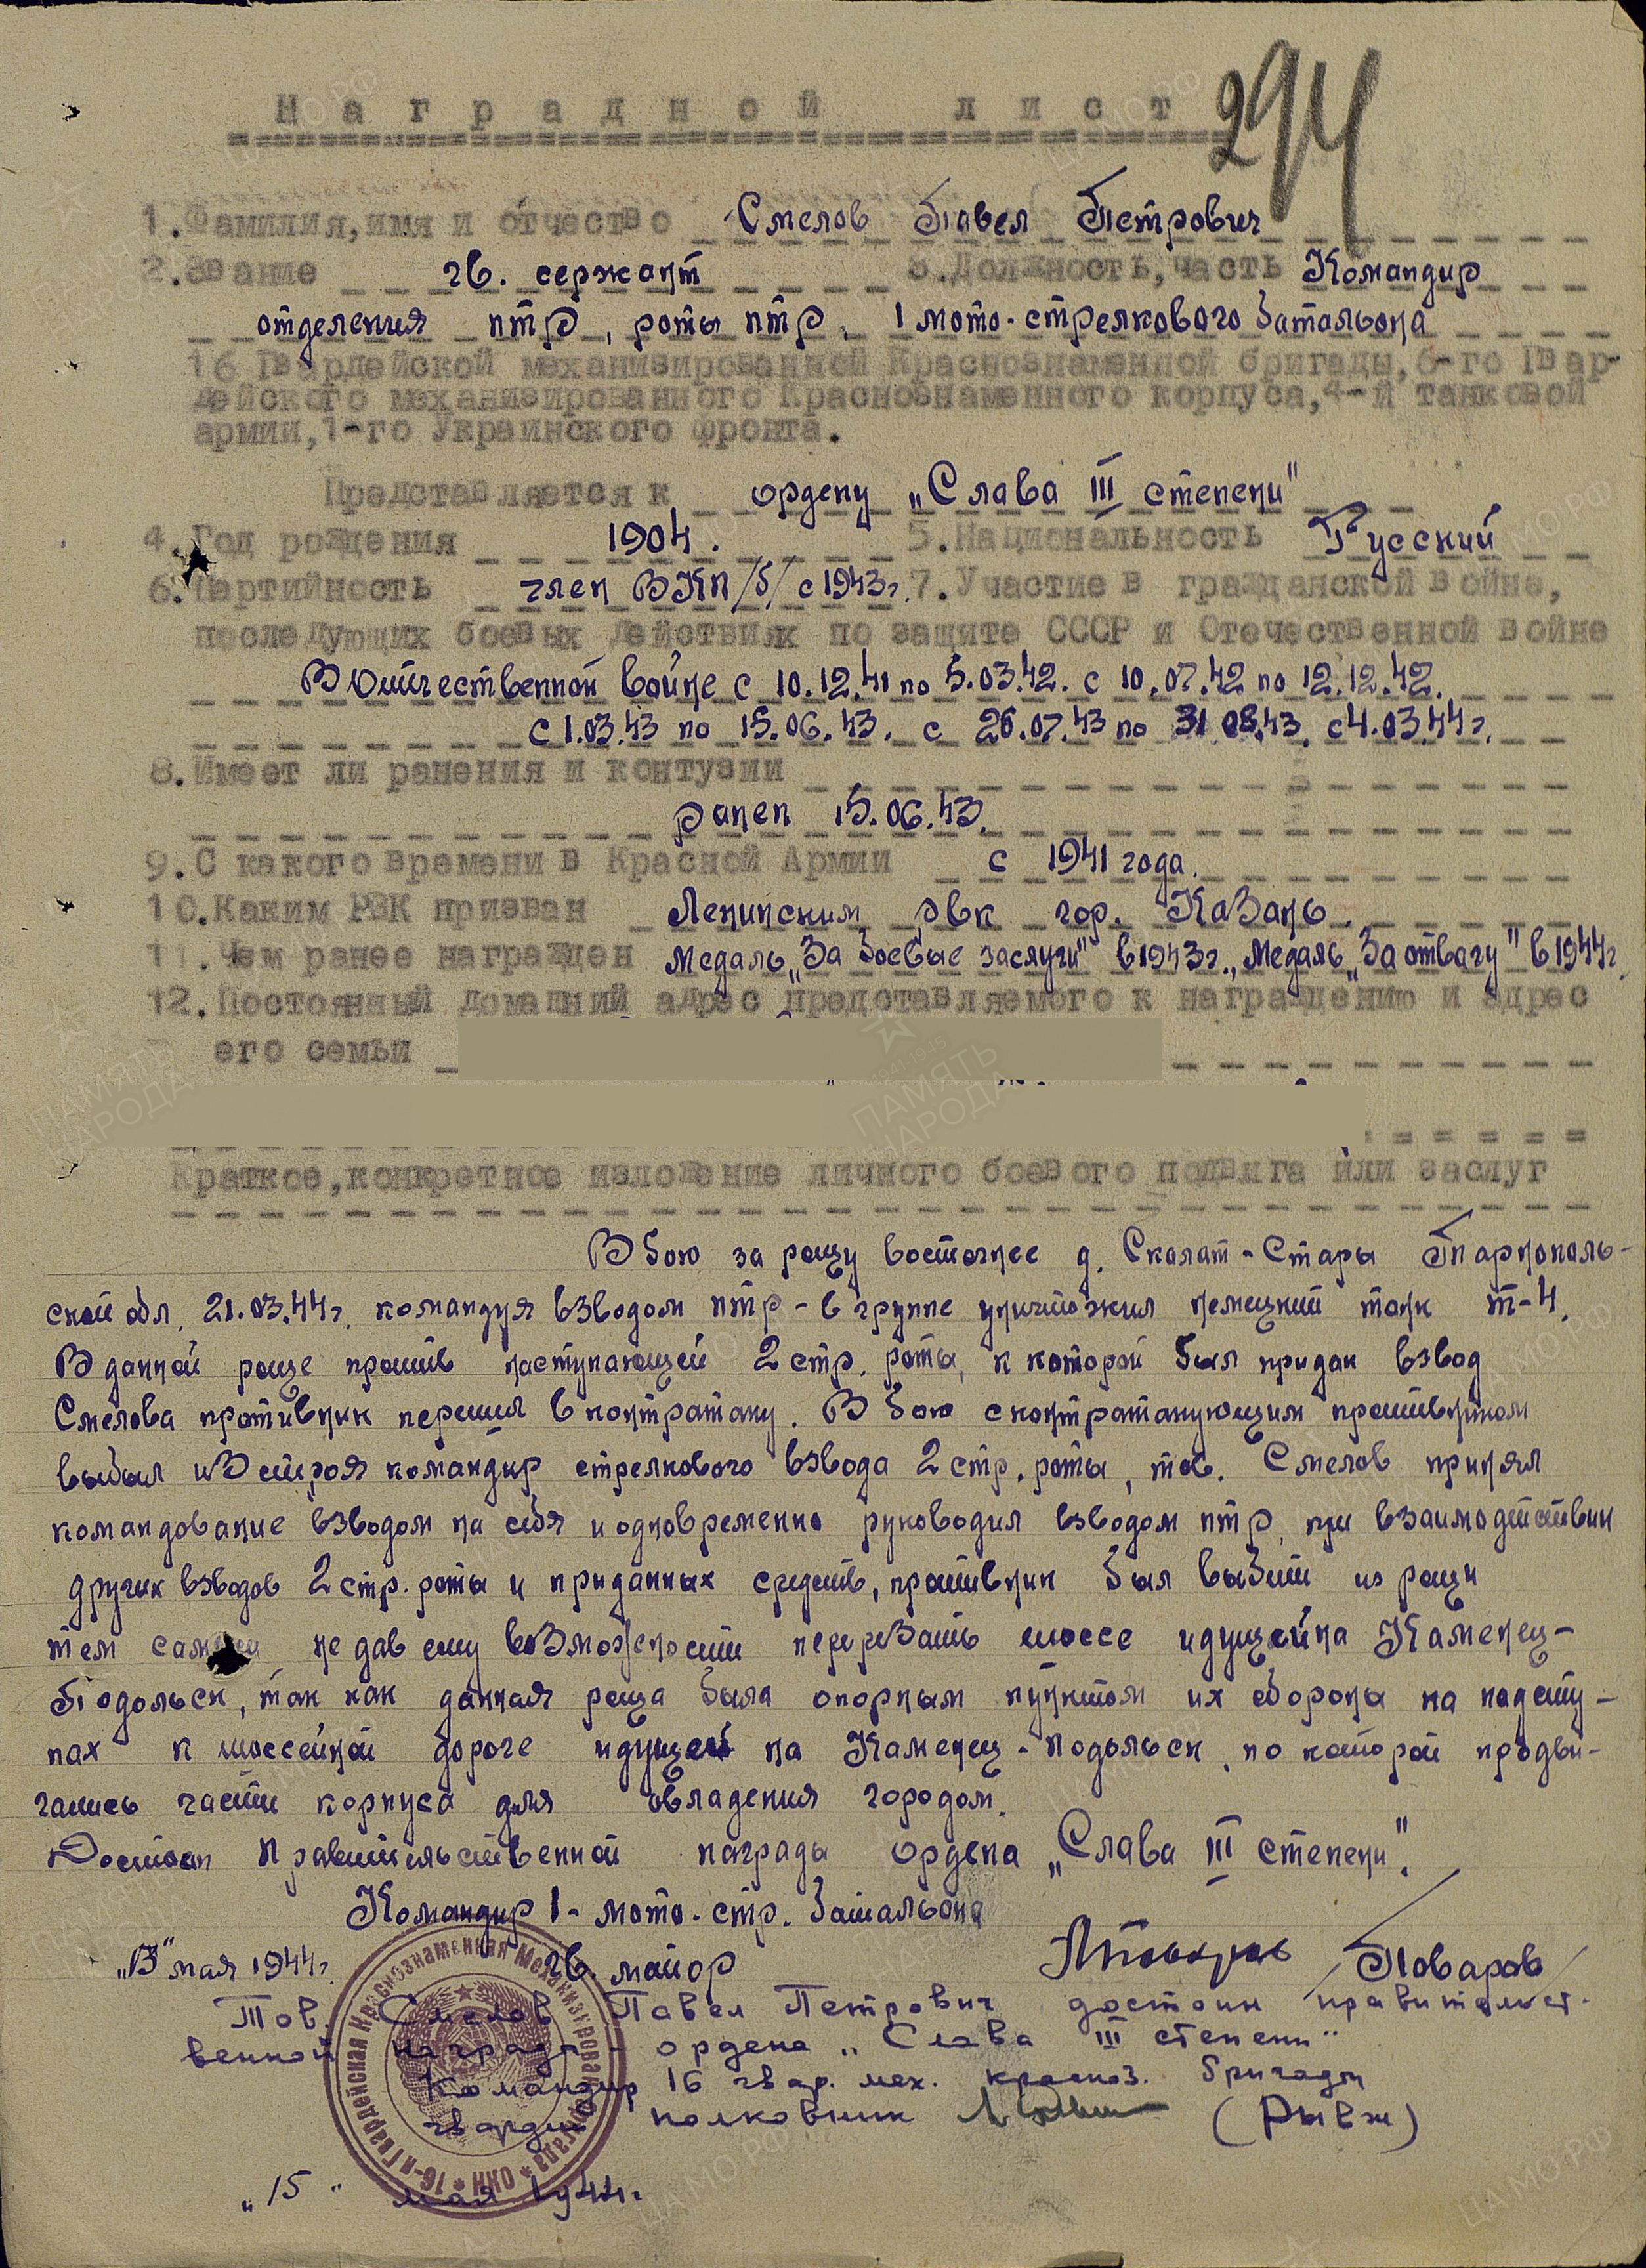 Наградной лист
294
1.Фамилия,имя и отчество Смелов Павел Петрович
2.Звание гв. сержант 3.Должность,часть Командир
отделения птр, роты птр, 1 мото-стрелкового батальона
16 Гвардейской механизированной Краснознаменной бригады,6-го Гвар-
дейского механизированного Краснознаменного корпуса,4-й танковой
армии,1-го Украинского фронта.
Представляется к ордену „Слава III степени"
4.Год рождения 1904. 5.Национальность Русский
6.Партийность член ВКП/б/ с 1943г. 7.Участие в гражданской войне,
последующих боевых действиях по защите СССР и Отечественной войне
В Отечественной войне с 10.12.41 по 5.03.42. с 10.07.42 по 12.12.42.
с 1.03.43 по 15.06.43. с 26.07.43 по 31.08.43. с 4.03.44г.
8.Имеет ли ранения и контузии
ранен 15.06.43.
9.С какого времени в Красной Армии с 1941 года.
10.Каким РВК призван Ленинским рвк гор. Казань.
11.Чем ранее награжден Медаль „За боевые заслуги" в 1943г., Медаль „За отвагу" в 1944г.
12.Постоянный домашний адрес представляемого к награждению и адрес
его семьи
Краткое,конкретное изложение личного боевого подвига или заслуг
В бою за рощу восточнее д. Скалат-Стары Тарнополь-
ской обл. 21.03.44г. командуя взводом птр - в группе уничтожил немецкий танк т-4.
В данной роще против наступающей 2 стр. роты, к которой был придан взвод
Смелова противник перешел в контратаку. В бою с контратакующим противником
выбыл из строя командир стрелкового взвода 2 стр. роты, тов. Смелов принял
командование взводом на себя и одновременно руководил взводом птр, при взаимодействии
других взводов 2 стр. роты и приданных средств, противник был выбит из рощи
тем самым не дав ему возможности перерезать шоссе идущей на Каменец-
Подольск, так как данная роща была опорным пунктом их обороны на подсту-
пах к шоссейной дороге идущей на Каменец-Подольск, по которой продви-
гались части корпуса для овладения городом.
Достоин Правительственной награды ордена „Слава III степени".
Командир 1-мото-стр. батальона
гв. майор /Поваров/
мая 1944г.
Тов. Смелов Павел Петрович достоин правительст-
венной награды - ордена „Слава III степени"
Командир 16 гвар. мех. красноз. бригады
гвардии полковник (Рывж)
„15" мая 1944г.
16-я Гвардейская Краснознаменная Механизированная бригада * НКО
ПАМЯТЬ НАРОДА
ЦАМО РФ